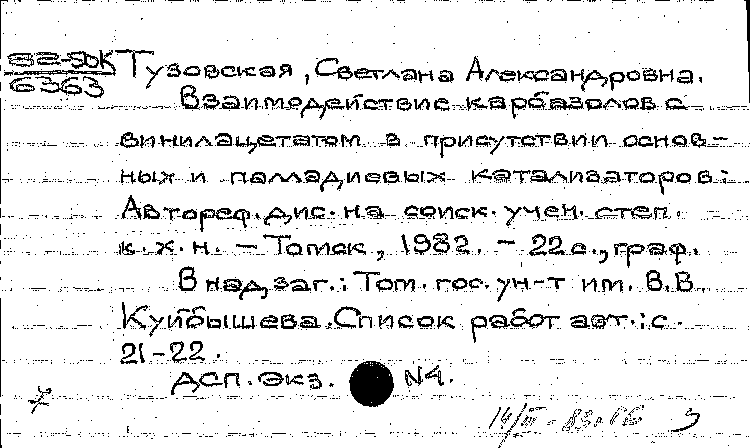 82-5DK
6363
Тузовская, Светлана Александровна.
Взаимодействие карбазолов с
винилацетатом в присутствии основ-
ных и палладиевых катализаторов:
Автореф. дис. на соиск. учен. степ.
к. х. н. – Томск, 1982. – 22 с., граф.
В надзаг.: Том. гос. ун-т им. В.В.
Куйбышева. Список работ авт.: с.
21-22.
ДСП. Экз. N4.